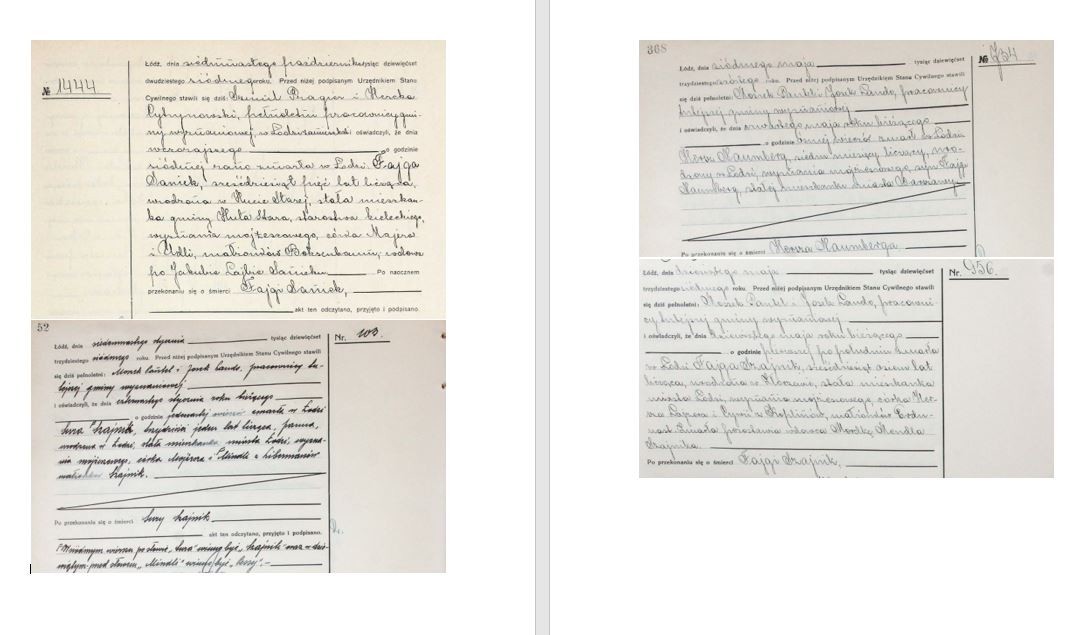 № 1444
Łódź, dnia siedemnastego października tysiąc dziewięćset
dwudziestego siódmego roku. Przed niżej podpisanym Urzędnikiem Stanu
Cywilnego stawili się dziś: Szmul Pragier i Herszka
pełnoletni pracownicy gmi-
ny wyznaniowej, w Łodzi zamieszkali i oświadczyli, że dnia
wczorajszego o godzinie
siódmej rano zmarła w Łodzi Fajga
Saniek, sześćdziesiąt pięć lat licząca,
urodzona w Hucie Starej, stała mieszkan-
ka gminy Huta Stara, starostwa kieleckiego,
wyznania mojżeszowego, córka Majera
i Udli, małżonków wdowa
po Jakubie Lajbie Po naocznem
przekonaniu się o śmierci Fajgi Saniek,
akt ten odczytano, przyjęto i podpisano.
52
Nr. 103.
Łódź, dnia siedemnastego stycznia tysiąc dziewięćset
trzydziestego siódmego roku. Przed niżej podpisanym Urzędnikiem Stanu Cywilnego stawili
się dziś pełnoletni: Moszek i Josek Lando, pracownicy tu-
tejszej gminy wyznaniowej
i oświadczyli, że dnia czternastego stycznia roku bieżącego
o godzinie jedenastej wieczór zmarła w Łodzi
Sura Szajnik, trzydzieści jeden lat licząca, panna,
urodzona w Łodzi, stała mieszkanka miasta Łodzi, wyzna-
nia mojżeszowego, córka Majżesza i Mindli z Libermanów
małżonków Szajnik.
Po przekonaniu się o śmierci Sury Szajnik
akt ten odczytano, przyjęto i podpisano.
wierszu po słowie „Sura” winno być „Szajnik” oraz w dzie-
wiątym przed słowem „Mindli” winno być
368
№ 734
Łódź, dnia siódmego maja tysiąc dziewięćset
trzydziestego roku. Przed niżej podpisanym Urzędnikiem Stanu Cywilnego stawili
się dziś pełnoletni: Moszek i Josek Lando, pracownicy
tutejszej gminy wyznaniowej
i oświadczyli, że dnia czwartego maja roku bieżącego
o godzinie ósmej wieczór zmarł w Łodzi
Hersz Naumberg, siedem miesięcy liczący, uro-
dzony w Łodzi, wyznania mojżeszowego, syn Fajgi
Naumberg, stałej mieszkanki miasta Warszawy
Po przekonaniu się o śmierci Hersza Naumberga
Nr. 956.
Łódź, dnia maja tysiąc dziewięćset
trzydziestego siódmego roku. Przed niżej podpisanym Urzędnikiem Stanu Cywilnego stawili
się dziś pełnoletni: Moszek i Josek Lando, pracowni-
cy tutejszej gminy wyznaniowej
i oświadczyli, że dnia maja roku bieżącego
o godzinie pierwszej po południu zmarła
w Łodzi Fajga Szajnik, sześćdziesiąt osiem lat
licząca, urodzona w stała mieszkanka
miasta Łodzi, wyznania mojżeszowego, córka Her-
sza i małżonków
zmarła pozostawiła wdowca Mordkę Mendla
Szajnika.
Po przekonaniu się o śmierci Fajgi Szajnik,